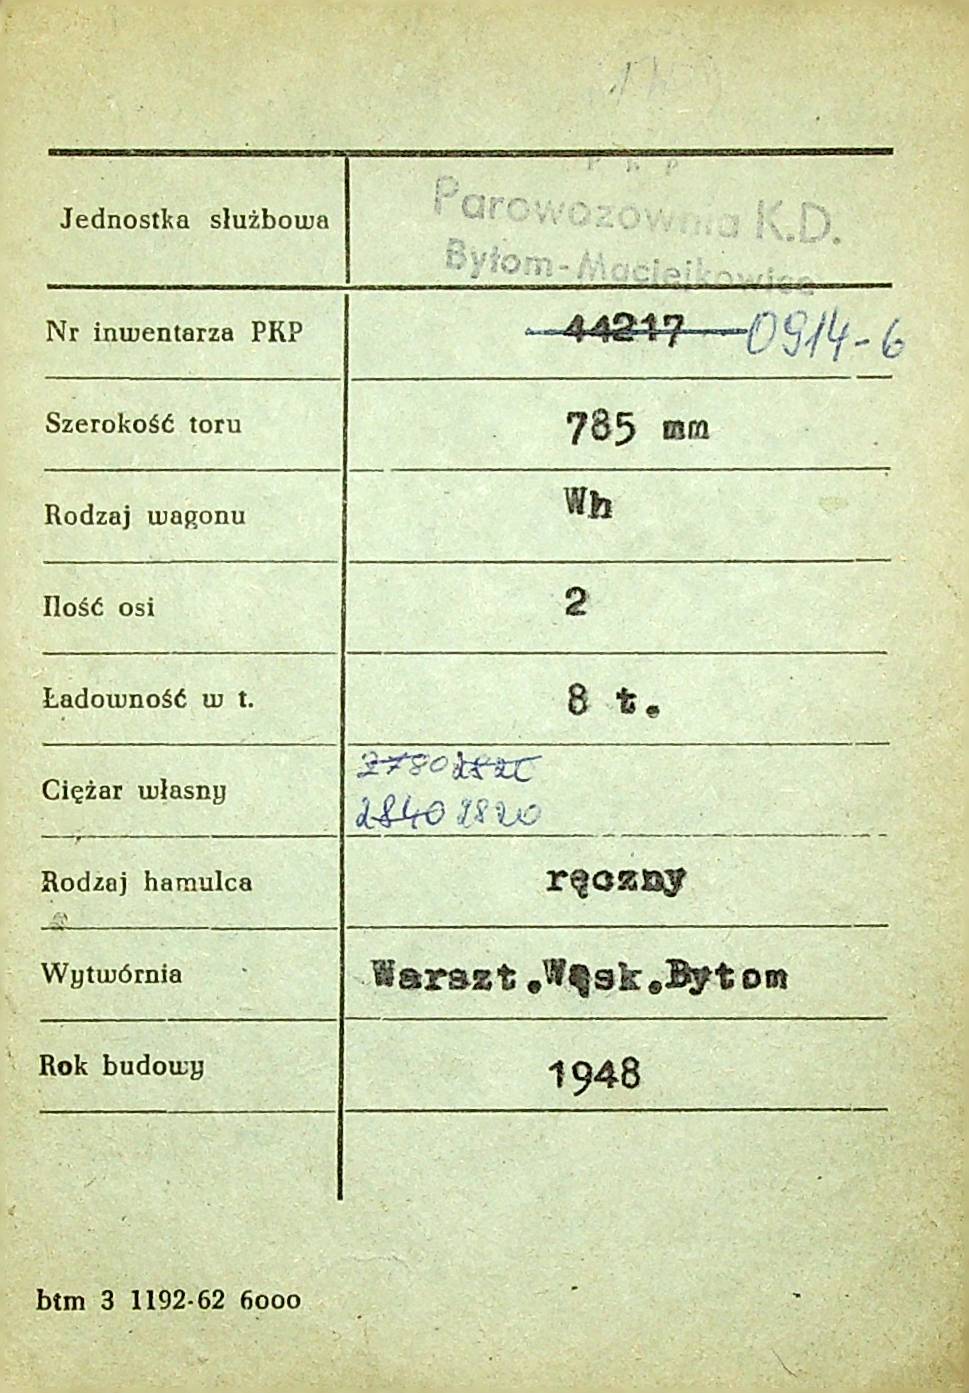 P K P
Jednostka służbowa Parowozownia K.D.
Bytom-Maciejkowice
Nr inwentarza PKP 44217 0914-6
Szerokość toru 785 mm
Rodzaj wagonu Wh
Ilość osi 2
Ładowność w t. 8 t.
2780
Ciężar własny 2840 2820
Rodzaj hamulca ręczny
Wytwórnia Warszt.Wąsk.Bytom
Rok budowy 1948
btm 3 1192-62 6000